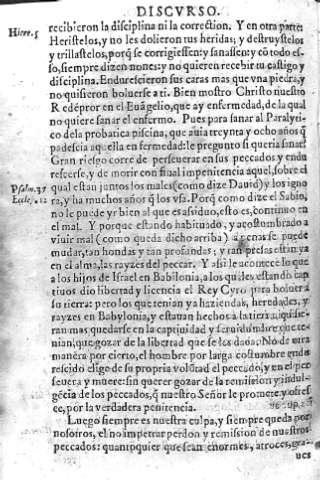 DISCVRSO.
recibieron la disciplina ni la correction. Y en otra parte:
Hiere. 5
Heristelos, y no les dolieron tus heridas; y destruystelos
y trillastelos, porq̃ se corrigiessen; y sanassen; y cõ todo es-
so, siempre dizen nones: y no quieren recebir tu castigo y
disciplina. Endurescieron sus caras mas que vna piedra, y
no quisieron boluerse a ti. Bien mostro Christo nuestro
Redẽpror en el Euãgelio, que ay enfermedad, de la qual
no quiere sanar el enfermo. Pues para sanar al Paralyti-
co de la probatica piscina, que auia treynta y ocho años q̃
padescia aquella enfermedad: le pregunto si queria sanar?
Gran riesgo corre de perseuerar en sus peccados y endu
rescerse, y de morir con final impenitencia aquel, sobre el
Psalm. 37
qual estan juntos los males (como dize Dauid) y los igno
Eccle. 12
ra, y ha muchos años q̃ los vsa. Porq̃ como dize el Sabio,
no le puede yr bien al que es assiduo, esto es, continuo en
el mal. Y porque estando habituado, y acostumbrado a
viuir mal (como queda dicho arriba) apenas se puede
mudar, tan hondas y tan profundas; y tan presas estan ya
en el alma, las rayzes del peccar. Y assi le acontece lo que
a los hijos de Israel en Babilonia, a los quales estando cap
tiuos dio libertad y licencia el Rey Cyro para boluer a
su tierra: pero los que tenian ya haziendas, heredades, y
rayzes en Babylonia, y estauan hechos a la tierra, quisie-
ran mas quedarse en la captiuidad y seruidumbre que te-
nian, que gozar de la libertad que se les daua. No de otra
manera por cierto, el hombre por larga costumbre endu
rescido elige de su propria volũtad el peccado, y en el per
seuera y muere: sin querer gozar de la remission y indul-
gẽcia de los peccados, q̃ nuestro Señor le promete y ofres
ce, por la verdadera penitencia.
Luego siempre es nuestra culpa, y siempre queda por
nosotros, el no impetrar perdon y remission de nuestros
peccados: quantoquier que sean enormes, atroces, gra-
ues